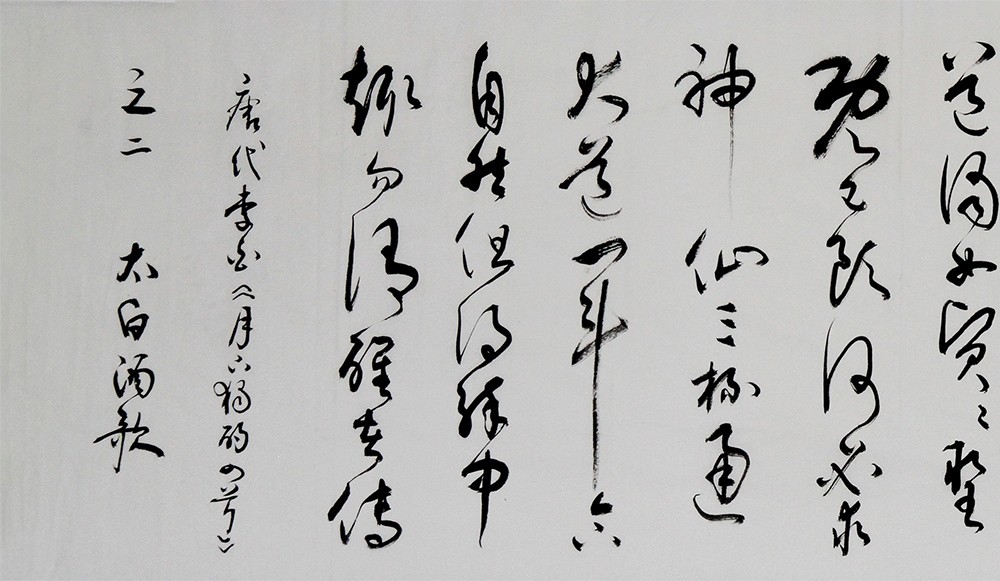 道濁如賢〻聖
既已飲何必求
神仙三杯通
大道一斗合
自然但得醉中
趣勿謂醒者傳
唐代李白《月下獨酌四首》
之二 太白酒歌